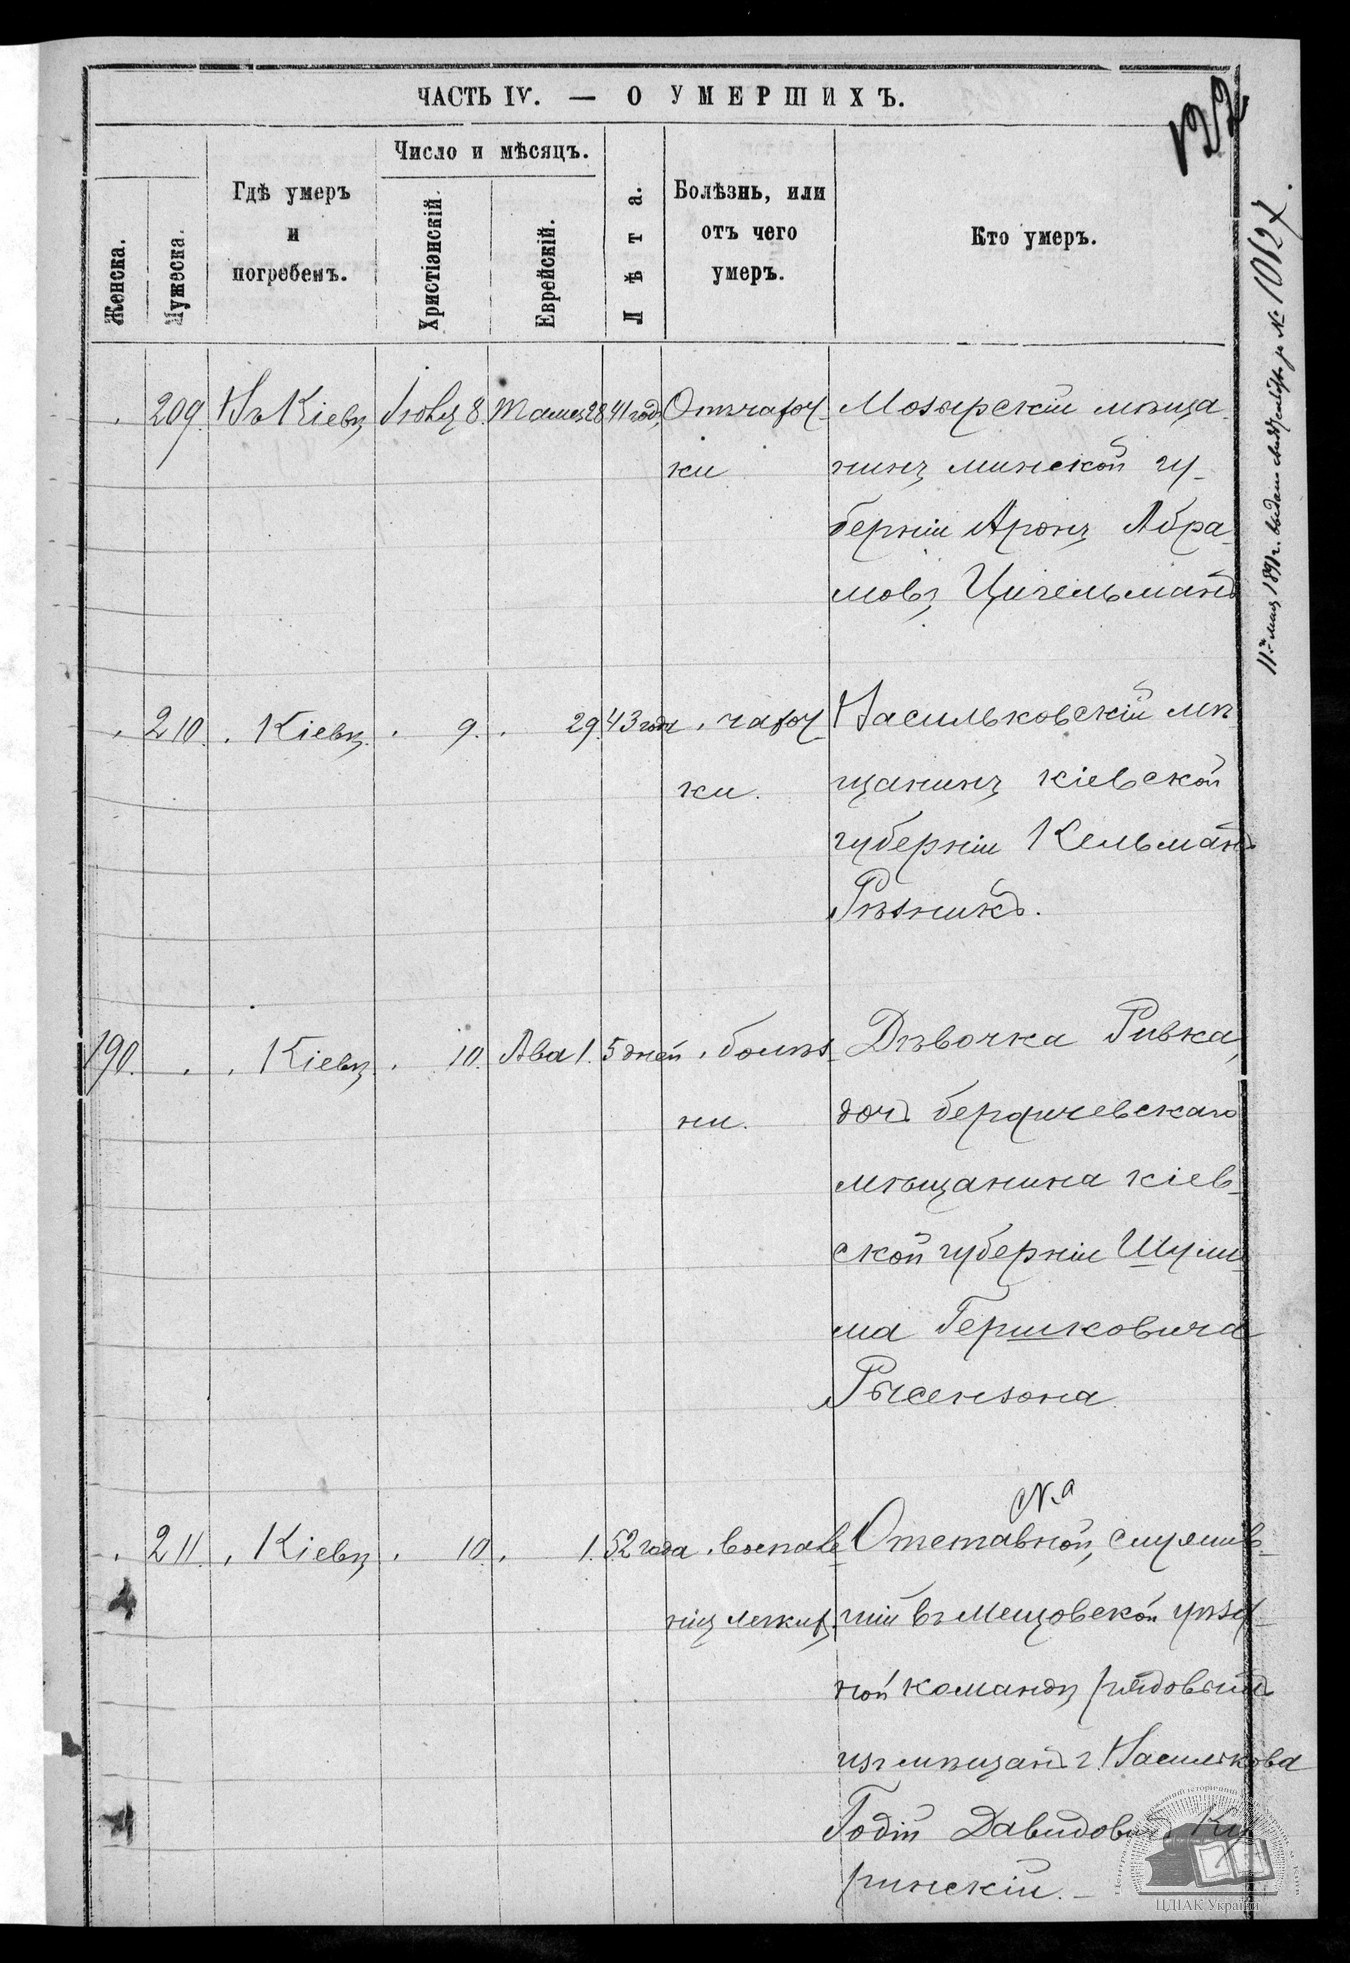 ЧАСТЬ IV. — О УМЕРШИХЪ.
Женска.
Мужеска.
Гдѣ умеръ
и
погребенъ.
Число и мѣсяцъ.
Христіанскій.
Еврейскій.
Лѣта.
Болѣзнь, или
отъ чего
умеръ.
Кто умеръ.
209. Въ Кіевѣ Іюля 8. Тамуз 28 41 год. Отъ чахот- Мозырскій мѣща-
ки нинъ минской гу-
берніи Аронъ Абра-
мовъ Цигельманъ
210. Кіевѣ. 9. 29. 43 года чахот Васильковскій мѣ
ки. щанинъ кіевской
губерніи Кельманъ
Рѣзникъ.
190. Кіевѣ. 10. Ава 1. 5 дней болѣз- Дѣвочка Ривка,
ни. дочь бердичевскаго
мѣщанина кіев-
ской губерніи Шули-
ма Гершковича
Рысензона
211. Кіевѣ 10. 1. 52 года воспале- Отставной, служив-
нія легких шій въ Мещовской уѣзд-
ной командѣ рядовымъ
изъ мѣщанъ г. Василькова
Годій Давидовичъ Ку
ринскій.
11го мая 1891 г. выдано за № 1012
ЦДІАК України